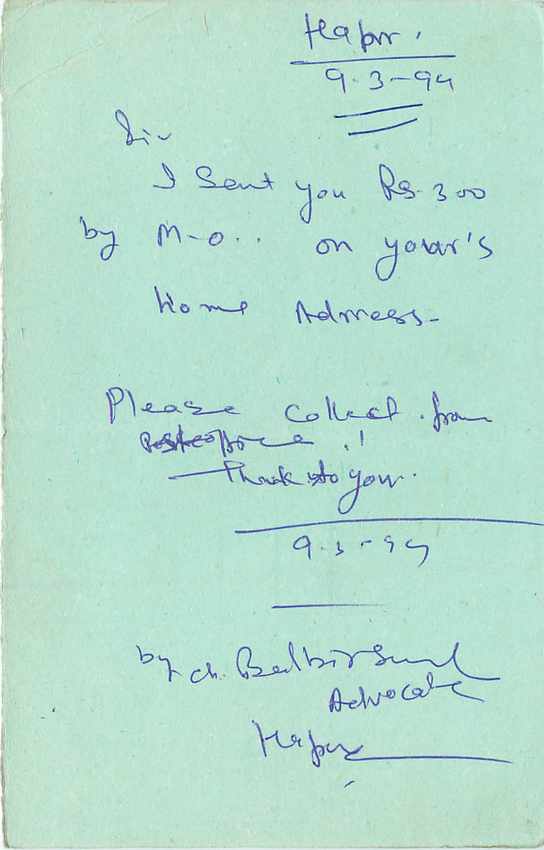 Hapur.
9-3-94
Sir
I Sent you Rs. 300
by M-O.. on your's
Home Adrress-
Please Collect from
Postoffice.!
Thanks to you.
9-3-94
by Ch. Balbir
Advocate
Hapur